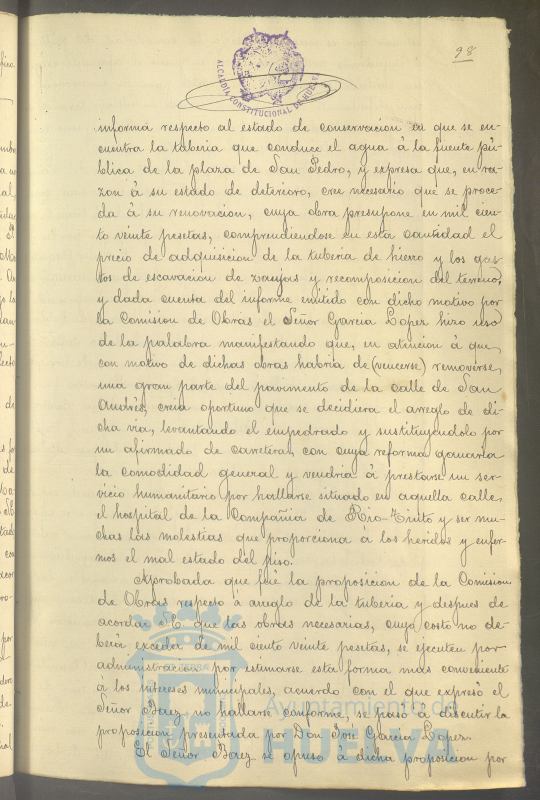 98
ALCALDÍA CONSTITUCIONAL DE HUELVA
informa respecto al estado de conservacion en que se en-
cuentra la tuberia que conduce el agua á la fuente pú-
blica de la plaza de San Pedro, y expresa que, en ra-
zon á su estado de deterioro, cree necesario que se proce-
da á su renovacion, cuya obra presupone en mil cien-
to veinte pesetas, comprendiendose en esta cantidad el
precio de adquisicion de la tuberia de hierro y los gas-
tos de escavacion de zanjas y recomposicion del terreno,
y dada cuenta del informe emitido con dicho motivo por
la Comision de Obras el Señor Garcia Lopez hizo uso
de la palabra manifestando que, en atencion á que,
con motivo de dichas obras habria de (vencerse) removerse,
una gran parte del pavimento de la calle de San
Andrés, creia oportuno que se decidiera el arreglo de di-
cha via, levantando el empedrado y sustituyendolo por
un afirmado de carretera, con cuya reforma ganaria
la comodidad general y vendria á prestarse un ser-
vicio humanitario por hallarse situado en aquella calle,
el hospital de la Compañia de Rio-Tinto y ser mu-
chas las molestias que proporciona á los heridos y enfer-
mos el mal estado del piso.
Aprobada que fué la proposicion de la Comision
de Obras respecto á arreglo de la tuberia y despues de
acordar S.E. que las obras necesarias, cuyo costo no de-
berá exceder de mil ciento veinte pesetas, se ejecuten por
administracion, por estimarse esta forma mas conveniente
á los intereses municipales, acuerdo con el que expresó el
Señor Baez no hallarse conforme, se pasó á discutir la
proposicion presentada por Don José Garcia Lopez.
El Señor Baez se opuso á dicha proposicion por
Ayuntamiento de
HUELVA